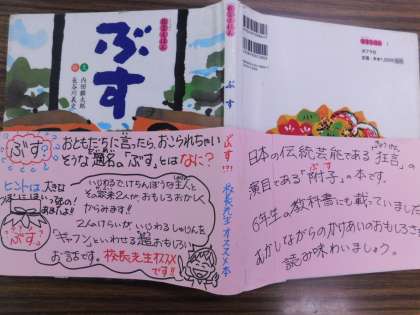 狂言えほん
ぶす
文 内田麟太郎
絵 長谷川義史
ぶす
定価
ぶす?
おともだちに言ったら、おこられちゃい
そうな題名の「ぶす」とはなに?
ヒントは、大きな
つぼに
ほいっているの!
あまいよ!!
ぶす。
いじわるでけちんぼうな主人と
その家来2人が、おもしろおかしく
からみます!!
2人のけらいが、いじわるしゅじんを
「ギャフン」といわせる超おもしろい
お話です。校長先生オススメ
です!!
ぶす
校長先生オススメ本
日本の伝統芸能である「狂言」の
きょうげん
演目である「附子」の本です。
ぶす
6年生の教科書にも載っていました。
むかしながらのかけあいのおもしろさを
読み味わいましょう。